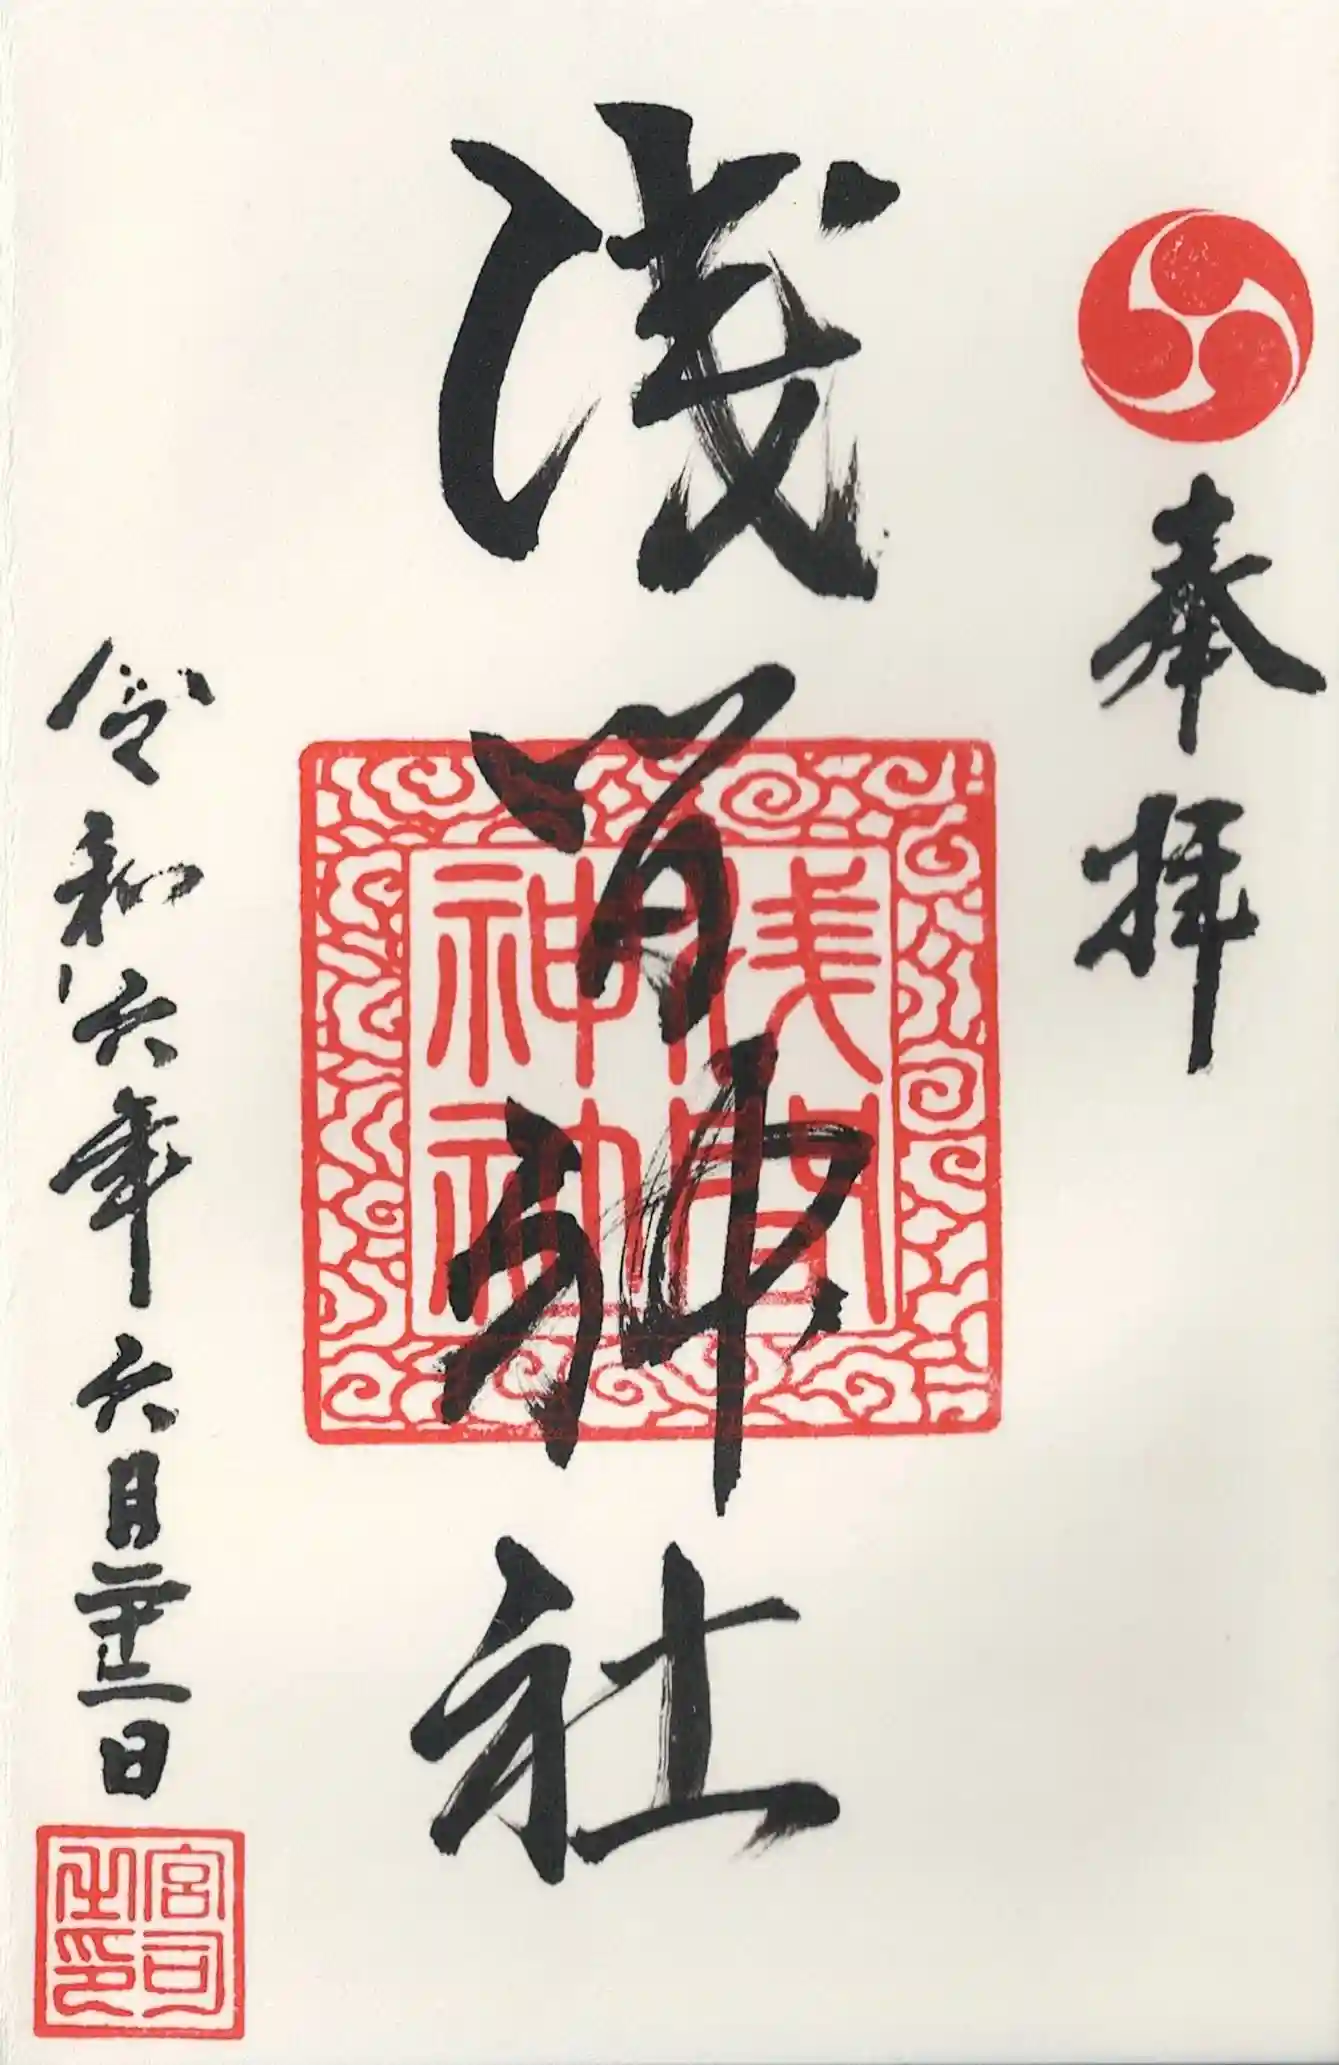 奉拝
浅間神社
浅間
神社
令和六年六月日
宮司
之印